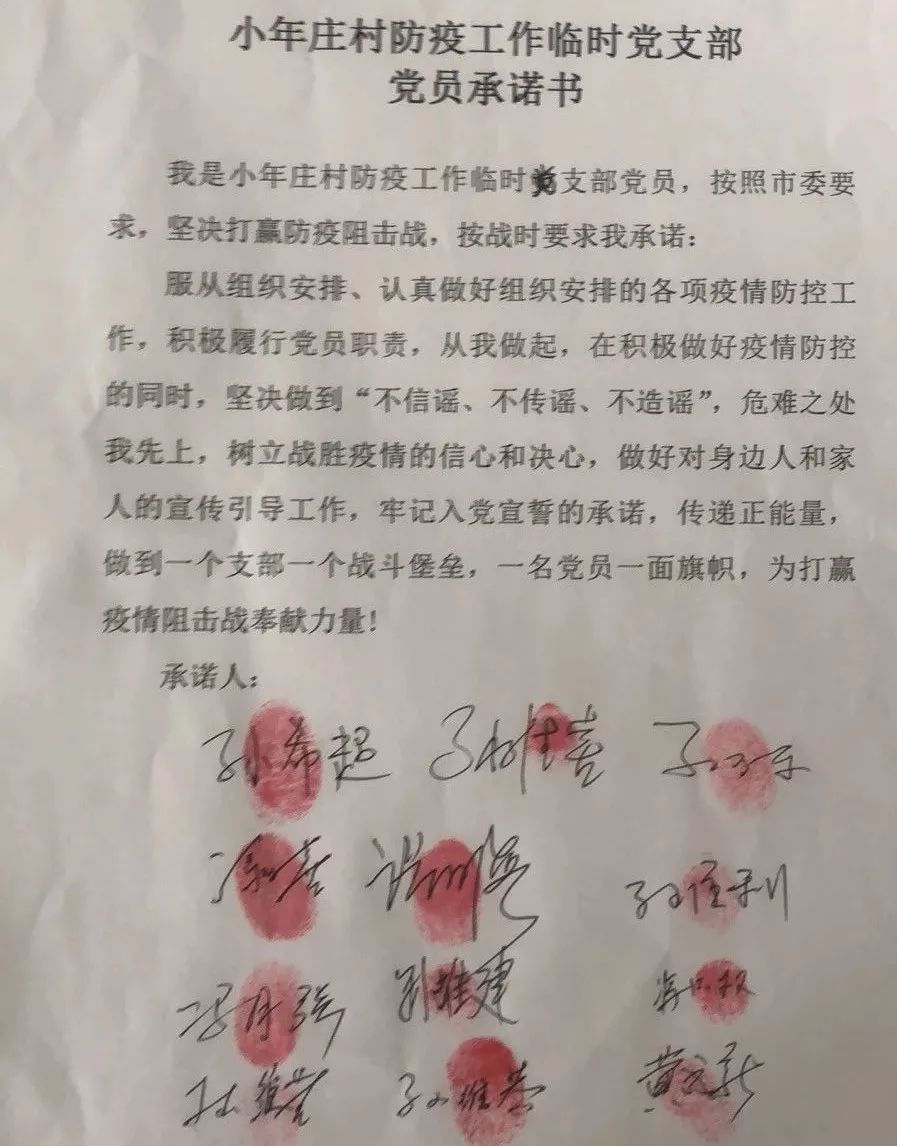 小年庄村防疫工作临时党支部
党员承诺书
我是小年庄村防疫工作临时党支部党员，按照市委要
求，坚决打赢防疫阻击战，按战时要求我承诺：
服从组织安排、认真做好组织安排的各项疫情防控工
作，积极履行党员职责，从我做起，在积极做好疫情防控
的同时，坚决做到“不信谣、不传谣、不造谣”，危难之处
我先上，树立战胜疫情的信心和决心，做好对身边人和家
人的宣传引导工作，牢记入党宣誓的承诺，传递正能量，
做到一个支部一个战斗堡垒，一名党员一面旗帜，为打赢
疫情阻击战奉献力量！
承诺人：
孙希超
孙维利
冯月强 刘维建
孙维